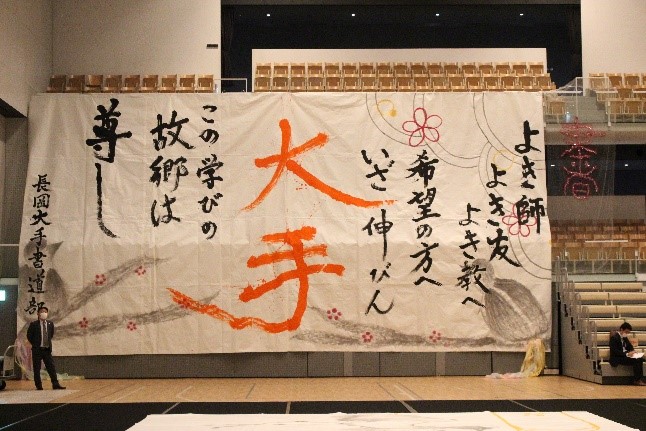 よき師
よき友
よき教へ
希望の方へ
いざ伸びん
大手
この学びの
故郷は
尊し
長岡大手書道部